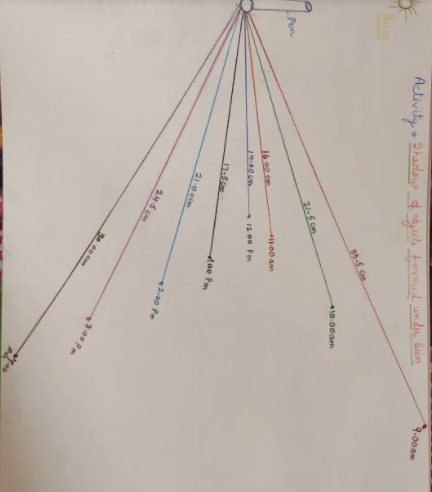 Activity → Shadow of objects formed under Sun
Sun
Pen
33.5 cm
9.00 am
21.5 cm
10.00 am
16.00 cm
11.00 am
14.00 cm
12.00 pm
17.5 cm
1.00 pm
21.00 cm
2.00 pm
24.5 cm
3.00 pm
30.00 cm